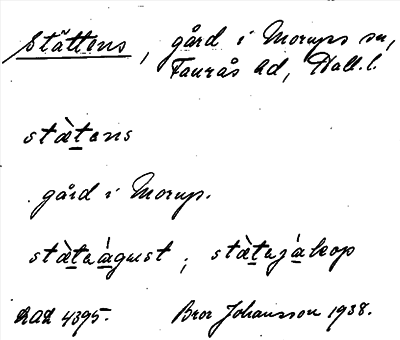 Stättens, gård i Morups sn,
Faurås hd, Hall.l.
stæ̀tens
gård i Morup.
stæ̀taàgust ; stæ̀tajàkop
DAL 4395. Bror Johansson 1938.